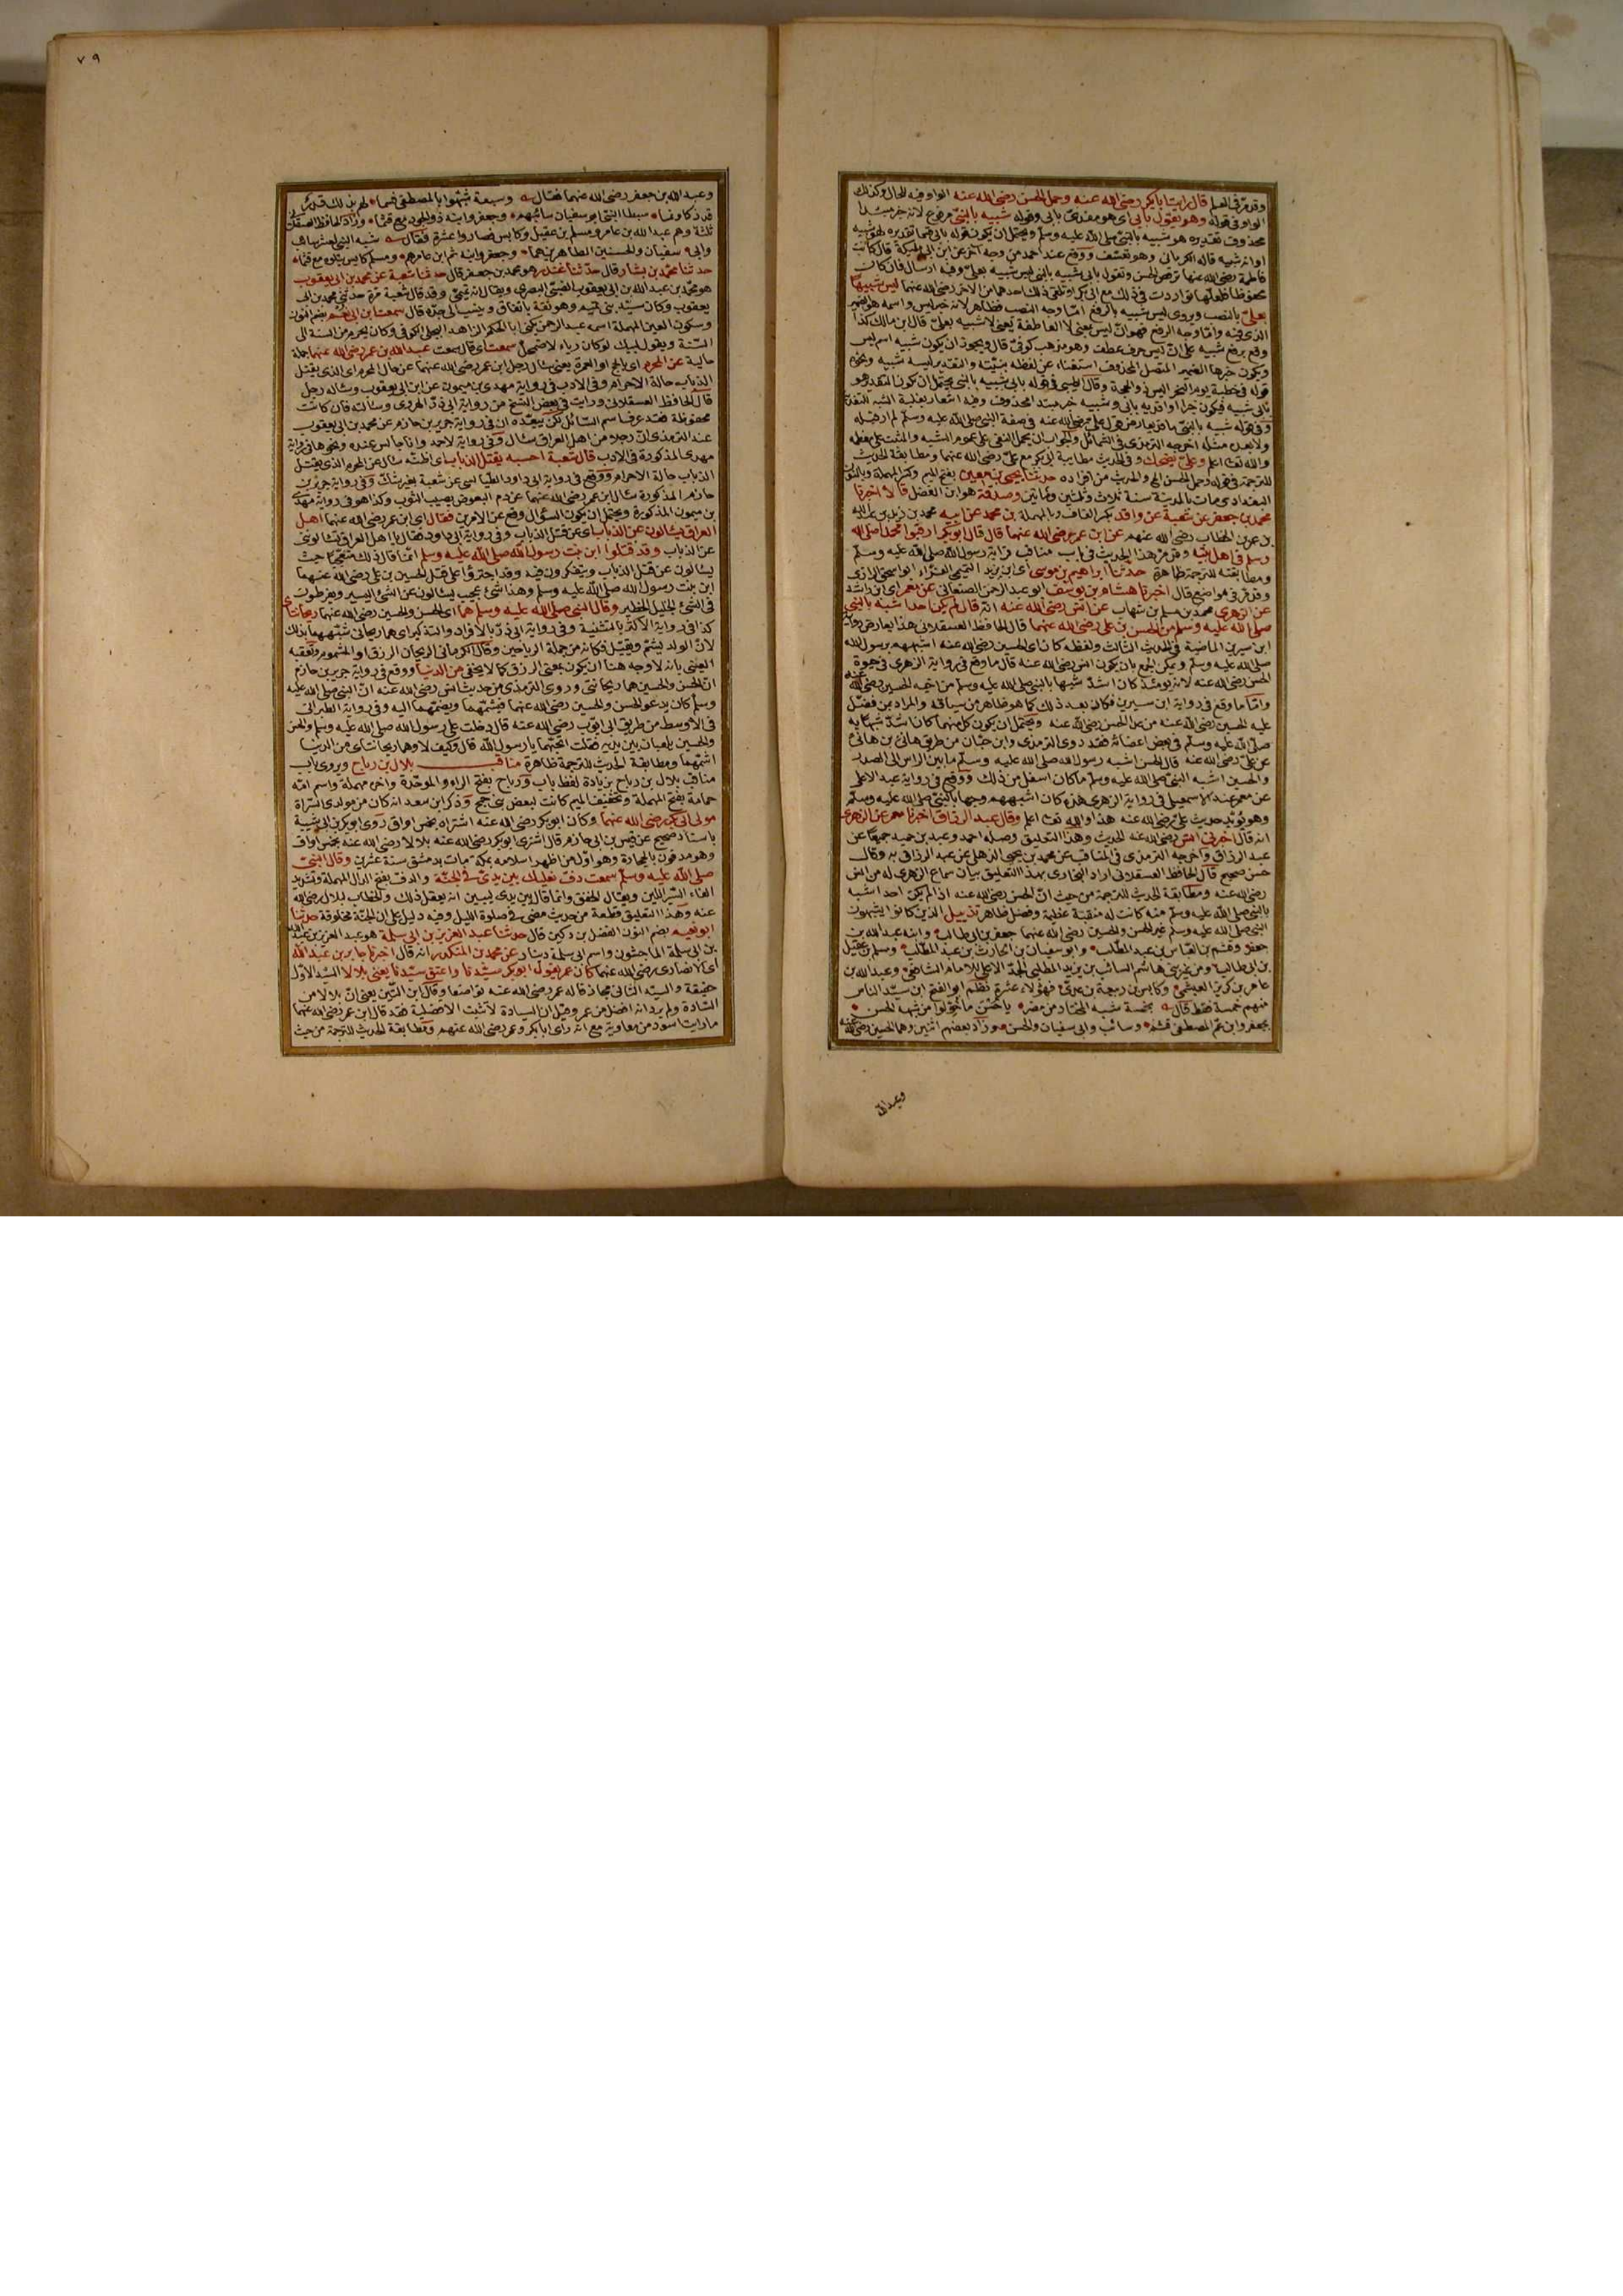 وقد مر في العلم قال رايت ابا بكر رضي الله عنه وحمل الحسن رضي الله عنه الواو فيه للحال وكذلك
الواو في قوله وهو يقول بابي اي هو مفدى بابي وقوله شبيه بالنبي مرفوع لانه خبر مبتدا
محذوف تقديره هو شبيه بالنبي صلى الله عليه وسلم ويحتمل ان يكون قوله بابي قسما تقديره لهو شبيه
فاطمة رضي الله عنها ترقص الحسن وتقول بابي شبيه بالنبي ليس شبيه بعلي وفيه ارسال فان كان
محفوظا فلعلها تواردت في ذلك مع ابي بكر او تلقى ذلك احدهما من الاخر رضي الله عنهما ليس شبيها
بعلي بالنصب ويروى ليس شبيه بالرفع اما وجه النصب فظاهر لانه خبر ليس واسمه هو الضمير
الذي فيه واما وجه الرفع فهو ان ليس بمعنى لا العاطفة يعني لا شبيه بعلي قال ابن مالك كذا
وقع برفع شبيه على ان ليس حرف عطف وهو مذهب كوفي قال ويجوز ان يكون شبيه اسم ليس
ويكون خبرها الضمير المتصل المحذوف استغناء عن لفظه بنيته والتقدير ليسه شبيه ونحوه
قوله في خطبة يوم النحر اليس ذو الحجة وقال الطيبي في قوله بابي شبيه بالنبي يحتمل ان يكون التقدير هو
وفي قوله شبيه بالنبي ما قد يعارض قول علي رضي الله عنه في صفة النبي صلى الله عليه وسلم لم ار قبله
ولا بعده مثله اخرجه الترمذي في الشمائل والجواب ان يحمل النفي على عموم الشبه والمثبت على معظمه
والله تعالى اعلم وعلي يضحك وفي الحديث مطايبة ابي بكر مع علي رضي الله عنهما ومطابقة الحديث
للترجمة في قوله وحمل الحسن الخ والحديث من افراده حدثنا يحيى بن معين بفتح الميم وكسر المهملة وبالنون
البغدادي مات بالمدينة سنة ثلاث وثلاثين ومائتين وصدقة هو ابن الفضل قالا اخبرنا
محمد بن جعفر عن شعبة عن واقد بكسر القاف وبالمهملة بن محمد عن ابيه محمد بن زيد بن عبد الله
بن عمر بن الخطاب رضي الله عنهم عن ابن عمر رضي الله عنهما قال قال ابو بكر ارقبوا محمدا صلى الله
وسلم في اهل بيته وقد مر هذا الحديث في باب مناقب قرابة رسول الله صلى الله عليه وسلم
ومطابقته للترجمة ظاهرة حدثنا ابراهيم بن موسى اي ابن يزيد التميمي الفراء ابو اسحق الرازي
وقد مر في مواضع قال اخبرنا هشام بن يوسف ابو عبد الرحمن الصنعاني عن معمر اي ابن راشد
عن الزهري محمد بن مسلم بن شهاب عن انس رضي الله عنه انه قال لم يكن احد اشبه بالنبي
صلى الله عليه وسلم من الحسن بن علي رضي الله عنهما قال الحافظ العسقلاني هذا يعارض رواية
ابن سيرين الماضية في الحديث الثالث ولفظه كان اي الحسين رضي الله عنه اشبههم برسول الله
صلى الله عليه وسلم ويمكن الجمع بان يكون انس رضي الله عنه قال ما وقع في رواية الزهري في حيوة
الحسن رضي الله عنه لانه يومئذ كان اشد شبها بالنبي صلى الله عليه وسلم من اخيه الحسين رضي الله عنه
واما ما وقع في رواية ابن سيرين فكان بعد ذلك كما هو ظاهر من سياقه والمراد من فضل
عليه الحسين رضي الله عنه من عدا الحسن رضي الله عنه ويحتمل ان يكون كل منهما كان اشد شبها به
صلى الله عليه وسلم في بعض اعضائه فقد روى الترمذي وابن حبان من طريق هانئ بن هانئ
عن علي رضي الله عنه قال الحسن اشبه رسول الله صلى الله عليه وسلم ما بين الراس الى الصدر
والحسين اشبه النبي صلى الله عليه وسلم ما كان اسفل من ذلك ووقع في رواية عبد الاعلى
عن معمر عند الاسمعيلي في رواية الزهري هذه كان اشبههم وجها بالنبي صلى الله عليه وسلم
وهو يؤيد حديث علي رضي الله عنه هذا والله تعالى اعلم وقال عبد الرزاق اخبرنا معمر عن الزهري
انه قال اخبرني انس رضي الله عنه الحديث وهذا التعليق وصله احمد وعبد بن حميد جميعا عن
عبد الرزاق واخرجه الترمذي في المناقب عن محمد بن يحيى الذهلي عن عبد الرزاق به وقال
حسن صحيح قال الحافظ العسقلاني اراد البخاري بهذا التعليق بيان سماع الزهري له من انس
رضي الله عنه ومطابقة الحديث للترجمة من حيث ان الحسن رضي الله عنه اذا لم يكن احد اشبه
بالنبي صلى الله عليه وسلم منه كانت له منقبة عظيمة وفضل ظاهر تذييل الذين كانوا يشبهون
النبي صلى الله عليه وسلم غير الحسن والحسين رضي الله عنهما جعفر بن ابي طالب وابنه عبد الله بن
جعفر وقثم بن العباس بن عبد المطلب وابو سفيان بن الحارث بن عبد المطلب ومسلم بن عقيل
بن ابي طالب ومن غير بني هاشم السائب بن يزيد المطلبي الجد الاعلى للامام الشافعي وعبد الله بن
عامر بن كريز العبشمي وكابس بن ربيعة بن عدي فهؤلاء عشرة نظم ابو الفتح ابن سيد الناس
منهم خمسة فقط قال بخمسة شبه المختار من مضر يا حسن ما خولوا من شبهه الحسن
بجعفر وابن عم المصطفى قثم وسائب وابي سفيان والحسن وزاد بعضهم اثنين وهما الحسين رضي الله عنه
وعبد الله
٧٩
وعبد الله بن جعفر رضي الله عنهما فقال وسبعة شبهوا بالمصطفى فسما لهم بذلك قدر
قد زكا ونما سبطا النبي ابو سفيان سائبهم وجعفر وابنه ذو الجود مع قثما وزاد الحافظ العسقلاني
ثلثة وهم عبد الله بن عامر ومسلم بن عقيل وكابس فصاروا عشرة فقال شبه النبي لعشر سائب
وابي سفيان والحسنين الطاهرين هما وجعفر وابنه ثم ابن عامرهم ومسلم كابس يتلوه مع قثما
حدثنا محمد بن بشار قال حدثنا غندر هو محمد بن جعفر قال حدثنا شعبة عن محمد بن ابي يعقوب
هو محمد بن عبد الله بن ابي يعقوب الضبي البصري ويقال انه تميمي وقد قال شعبة مرة حدثني محمد بن ابي
يعقوب وكان سيد بني تميم وهو ثقة باتفاق وينسب الى جده قال سمعت ابن ابي نعم بضم النون
وسكون العين المهملة اسمه عبد الرحمن يكنى ابا الحكم الزاهد البجلي الكوفي وكان يحرم من السنة الى
السنة ويقول لبيك لو كان رياء لاضمحل سمعت اي قال سمعت عبد الله بن عمر رضي الله عنهما جملة
حالية عن المحرم اي بالحج او العمرة يعني سال رجل ابن عمر رضي الله عنهما عن حال المحرم اي الذي يقتل
الذباب حالة الاحرام وفي الادب في رواية مهدي بن ميمون عن ابن ابي يعقوب وساله رجل
قال الحافظ العسقلاني ورايت في بعض النسخ من رواية ابي ذر الهروي وسالته فان كانت
محفوظة فقد عرف اسم السائل لكن يبعده ان في رواية جرير بن حازم عن محمد بن ابي يعقوب
عند الترمذي ان رجلا من اهل العراق سال وفي رواية لاحمد وانا جالس عنده ونحوها في رواية
مهدي المذكورة في الادب قال شعبة احسبه يقتل الذباب اي اظنه سال عن المحرم الذي يقتل
الذباب حالة الاحرام ووقع في رواية ابي داود الطيالسي عن شعبة بغير شك وفي رواية جرير بن
حازم المذكورة سال ابن عمر رضي الله عنهما عن دم البعوض يصيب الثوب وكذا هو في رواية مهدي
بن ميمون المذكورة ويحتمل ان يكون السؤال وقع عن الامرين فقال اي ابن عمر رضي الله عنهما اهل
العراق يسالون عن الذباب اي عن قتل الذباب وفي رواية ابي داود فقال يا اهل العراق تسالوني
عن الذباب وقد قتلوا ابن بنت رسول الله صلى الله عليه وسلم انما قال ذلك متعجبا حيث
يسالون عن قتل الذباب ويتفكرون فيه وقد اجترؤا على قتل الحسين بن علي رضي الله عنهما
ابن بنت رسول الله صلى الله عليه وسلم وهذا شئ عجيب يسالون عن الشئ اليسير ويفرطون
في الشئ الجليل الخطير وقال النبي صلى الله عليه وسلم هما اي الحسن والحسين رضي الله عنهما ريحانتاي
كذا في رواية الاكثر بالتثنية وفي رواية ابي ذر بالافراد والتذكير اي هما ريحاني شبههما بذلك
لان الولد يشم ويقبل فكانه من جملة الرياحين وقال الكرماني الريحان الرزق او المشموم وتعقبه
العيني بانه لا وجه هنا ان يكون بمعنى الرزق كما لا يخفى من الدنيا ووقع في رواية جرير بن حازم
ان الحسن والحسين هما ريحانتي وروى الترمذي من حديث انس رضي الله عنه ان النبي صلى الله عليه
وسلم كان يدعو الحسن والحسين رضي الله عنهما فيشمهما ويضمهما اليه وفي رواية الطبراني
في الاوسط من طريق ابي ايوب رضي الله عنه قال دخلت على رسول الله صلى الله عليه وسلم والحسن
والحسين يلعبان بين يديه فقلت اتحبهما يا رسول الله قال وكيف لا وهما ريحانتاي من الدنيا
اشمهما ومطابقة الحديث للترجمة ظاهرة مناقب بلال بن رباح ويروى باب
مناقب بلال بن رباح بزيادة لفظ باب ورباح بفتح الراء والموحدة واخره مهملة واسم امه
حمامة بفتح المهملة وتخفيف الميم كانت لبعض بني جمح وذكر ابن سعد انه كان من مولدي السراة
مولى ابي بكر رضي الله عنهما وكان ابو بكر رضي الله عنه اشتراه بخمس اواق روى ابو بكر بن ابي شيبة
باسناد صحيح عن قيس بن ابي حازم قال اشترى ابو بكر رضي الله عنه بلالا رضي الله عنه بخمس اواق
وهو مدفون بالحجارة وهو اول من اظهر اسلامه بمكة مات بدمشق سنة عشرين وقال النبي
صلى الله عليه وسلم سمعت دف نعليك بين يدي في الجنة والدف بفتح الدال المهملة وتشديد
الفاء السير اللين ويقال الخفق وانما قال بين يدي ليبين انه يفعل ذلك والخطاب لبلال رضي الله
عنه وهذا التعليق قطعة من حديث مضى في صلوة الليل وفيه دليل على ان الجنة مخلوقة حدثنا
ابو نعيم بضم النون الفضل بن دكين قال حدثنا عبد العزيز بن ابي سلمة هو عبد العزيز بن عبد الله
بن ابي سلمة الماجشون واسم ابي سلمة دينار عن محمد بن المنكدر انه قال اخبرنا جابر بن عبد الله
اي الانصاري رضي الله عنهما كان عمر يقول ابو بكر سيدنا واعتق سيدنا يعني بلالا السيد الاول
حقيقة والسيد الثاني مجاز قاله عمر رضي الله عنه تواضعا وقال ابن التين يعني ان بلالا من
السادة ولم يرد انه افضل من عمر وقيل ان السيادة لا تثبت الافضلية فقد قال ابن عمر رضي الله عنهما
ما رايت اسود من معاوية مع انه راى ابا بكر وعمر رضي الله عنهم ومطابقة الحديث للترجمة من حيث